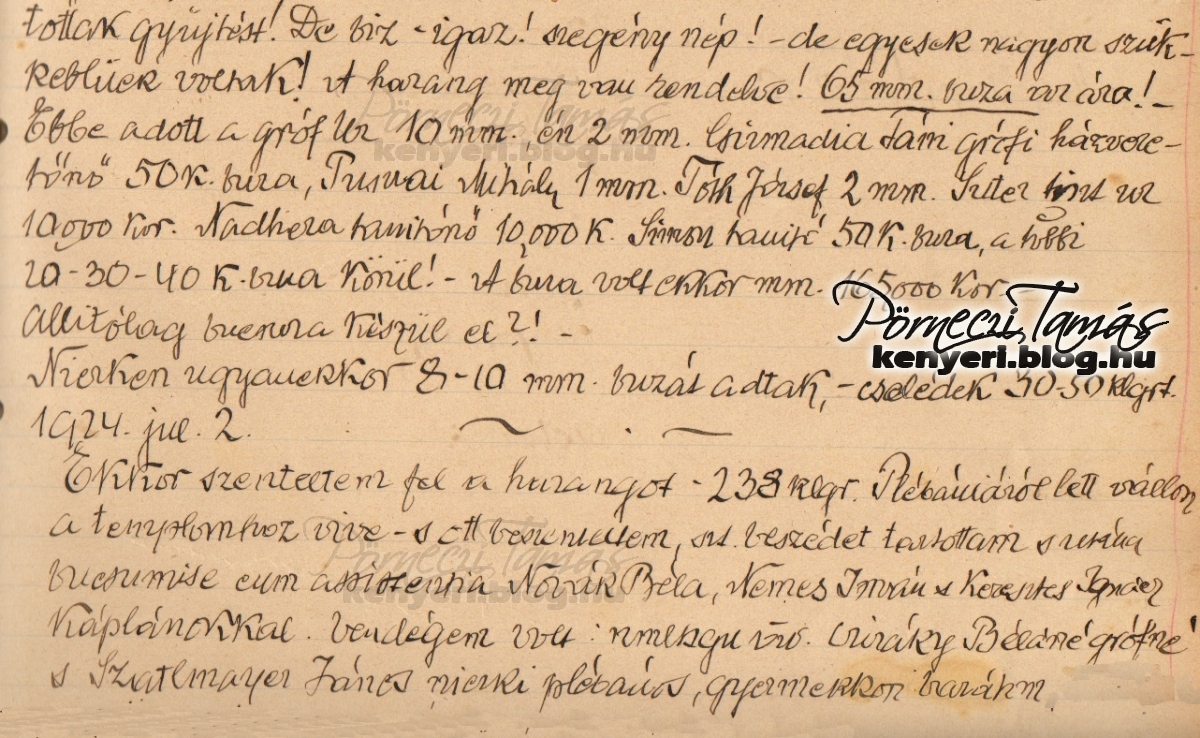 tottak gyüjtést! De biz - igaz! szegény nép! - de egyesek nagyon szük-
keblüek voltak! A harang meg van rendelve! 65 mm. buza az ára! -
Ebbe adott a gróf Ur 10 mm. én 2 mm. Csizmadia grófi házveze-
tőnő 50 K. buza, Pusztai Mihály 1 mm. Tóth József 2 mm. Suter ur
10,000 kor. Nadhera tanitónő 10,000 K. Simon tanitó 50 K. buza, a többi
20-30-40 K. buza körül! - A buza volt ekkor mm. 165000 Kor. -
Állitólag bucsura készül el?! -
Nicken ugyanekkor 8-10 mm. buzát adtak, - cselédek 30-50 klgrt.
1924. jul. 2.
Ekkor szenteltem fel a harangot - 238 klgr. Plébániáról lett vállon
a templomhoz vive - s ott beszenteltem, szt. beszédet tartottam s utána
bucsumise cum assistentia Novák Béla, Nemes István s Keresztes Ignácz
káplánokkal. Vendégem volt : nmlgu özv. Cziráky Béláné grófné
s Szatlmayer János nicki plébános, gyermekkori barátom.
Pörneczi Tamás
kenyeri.blog.hu
Pörneczi Tamás
kenyeri.blog.hu
Pörneczi Tamás
kenyeri.blog.hu